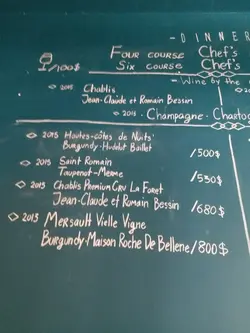 - DINNER
FOUR COURSE Chef's
SIX COURSE Chef's
/100$
- WINE by the
2015 Chablis
Jean-Claude et Romain Bessin
2015 · Champagne - Chartog
2015 Hautes-côtes de Nuits
Burgundy-Hudelot Baillet /500$
2015 Saint Romain
Taupenot-Merme /550$
2015 Chablis Premium Cru La Foret
Jean-Claude et Romain Bessin /680$
2015 Mersault Vielle Vigne
Burgundy-Maison Roche De Bellene /800$